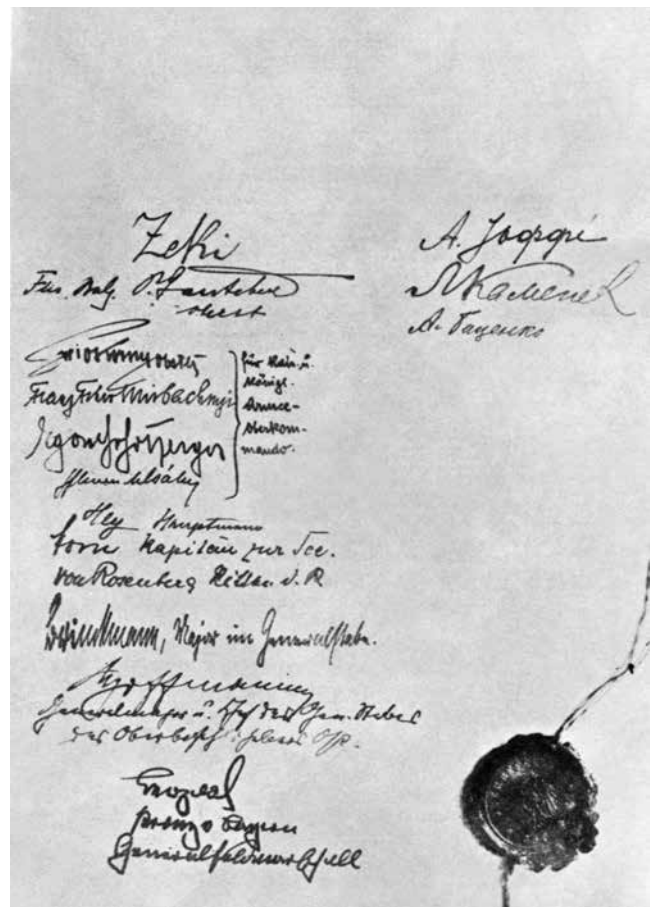 Zeki
Oberst
für kais. u.
königl.
Armee-
oberkom-
mando.
Hey Hauptmann
Horn Kapitän zur See.
von Rosenberg Rittm. d. R
Brinckmann, Major im Generalstabe.
Hoffmann
Generalmajor u. Chef des Gen. Stabes
des Oberbefehlshabers Ost.
Leopold
Prinz v Bayern
Generalfeldmarschall
А. Іоффе
Л Каменев
А. Биценко